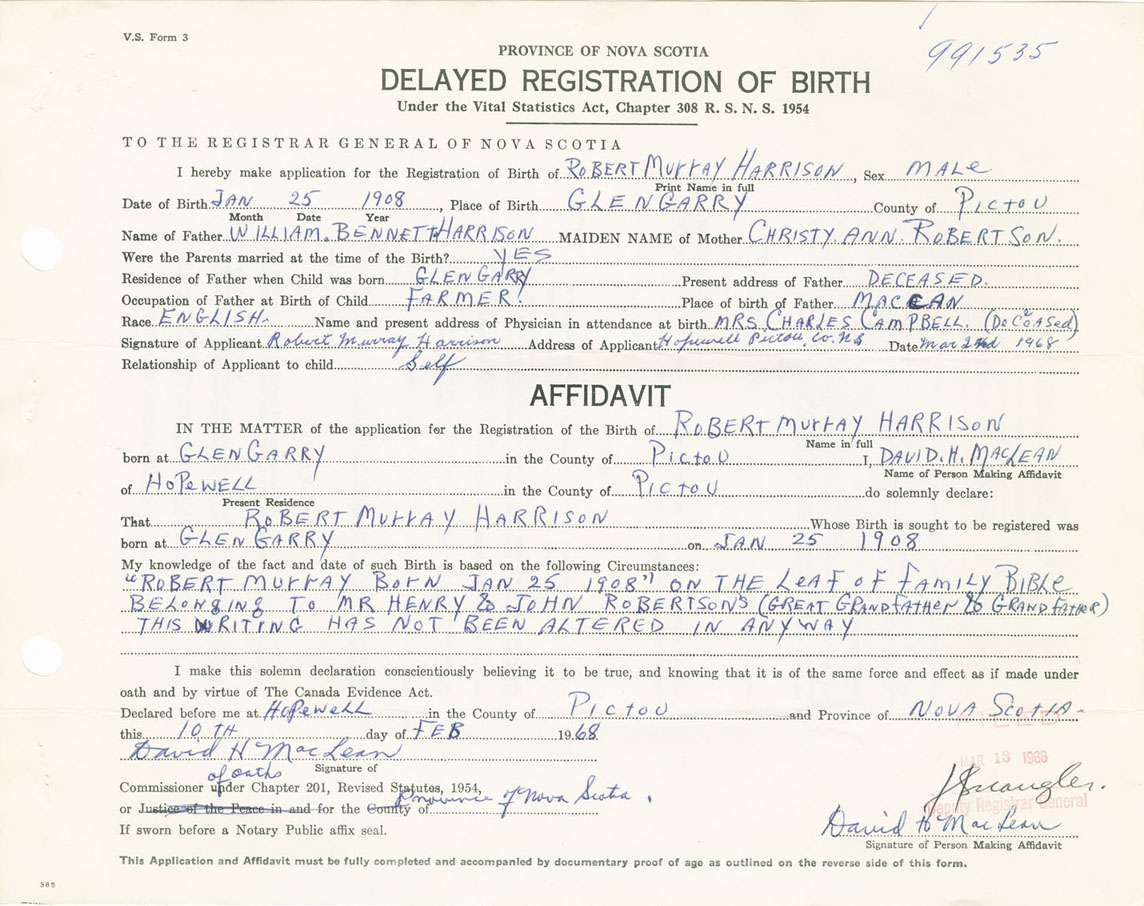 V.S. Form 3
991535
PROVINCE OF NOVA SCOTIA
DELAYED REGISTRATION OF BIRTH
Under the Vital Statistics Act, Chapter 308 R. S. N. S. 1954
TO THE REGISTRAR GENERAL OF NOVA SCOTIA
I hereby make application for the Registration of Birth of ROBERT MURRAY HARRISON, Sex MALE
Print Name in full
Date of Birth JAN 25 1908, Place of Birth GLENGARRY County of PICTOU
Month Date Year
Name of Father WILLIAM. BENNETT HARRISON MAIDEN NAME of Mother CHRISTY. ANN. ROBERTSON.
Were the Parents married at the time of the Birth? YES
Residence of Father when Child was born GLENGARRY Present address of Father DECEASED.
Occupation of Father at Birth of Child FARMER. Place of birth of Father
Race ENGLISH. Name and present address of Physician in attendance at birth MRS. CHARLES CAMPBELL. (DECEASED)
Signature of Applicant Robert Murray Harrison Address of Applicant Hopewell Pictou, Co. N.S Date Mar 2nd 1968
Relationship of Applicant to child Self
AFFIDAVIT
IN THE MATTER of the application for the Registration of the Birth of ROBERT MURRAY HARRISON
Name in full
born at GLENGARRY in the County of PICTOU I, DAVID. H. MACLEAN
Name of Person Making Affidavit
of HOPEWELL in the County of PICTOU do solemnly declare:
Present Residence
That ROBERT MURRAY HARRISON Whose Birth is sought to be registered was
born at GLEN GARRY on JAN 25 1908
My knowledge of the fact and date of such Birth is based on the following Circumstances:
"ROBERT MURRAY BORN JAN 25 1908" ON THE LEAF OF FAMILY BIBLE
BELONGING TO MR HENRY & JOHN ROBERTSONS (GREAT GRANDFATHER & GRANDFATHER)
THIS WRITING HAS NOT BEEN ALTERED IN ANYWAY
I make this solemn declaration conscientiously believing it to be true, and knowing that it is of the same force and effect as if made under
oath and by virtue of The Canada Evidence Act.
Declared before me at HOPEWELL in the County of PICTOU and Province of NOVA SCOTIA-
this 10 TH day of FEB 1968
David H MacLean
Signature of
of oaths
Commissioner under Chapter 201, Revised Statutes, 1954,
or Justice of the Peace in and for the County of Province of Nova Scotia.
If sworn before a Notary Public affix seal.
MAR 13 1968
Deputy Registrar General
David H MacLean
Signature of Person Making Affidavit
This Application and Affidavit must be fully completed and accompanied by documentary proof of age as outlined on the reverse side of this form.
385